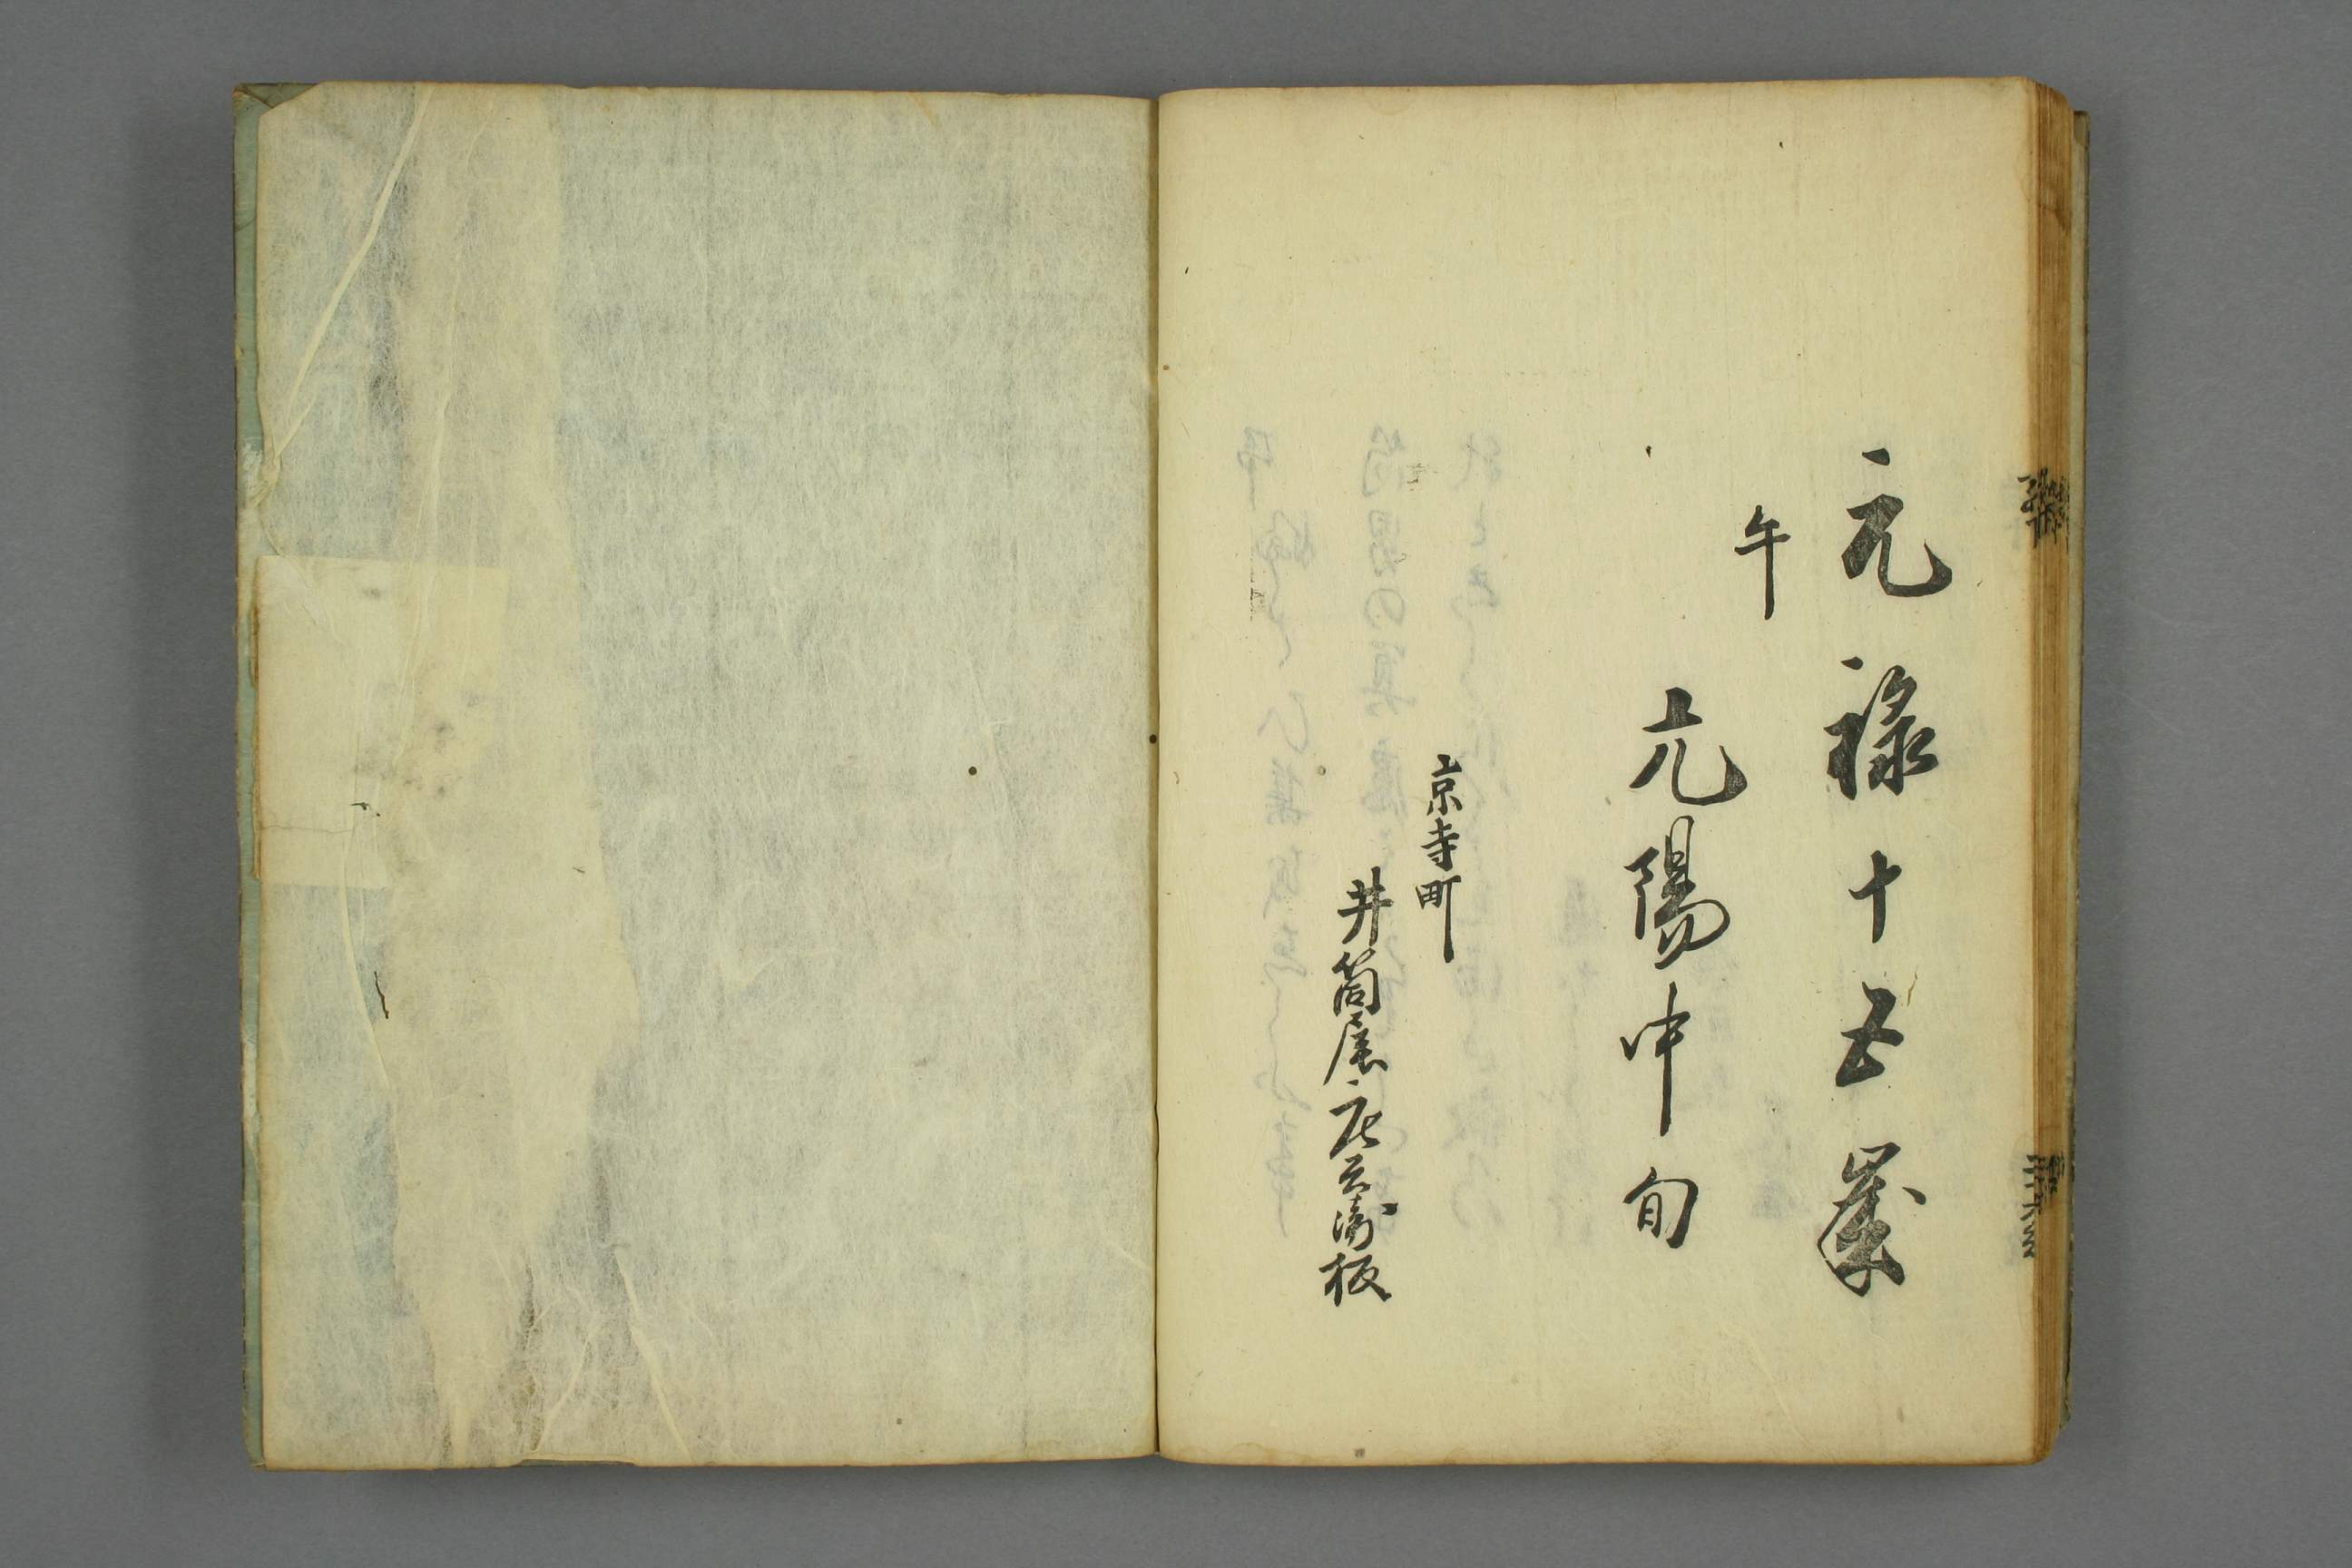 元禄十五歳
午
亢陽中旬
京寺町
井筒屋庄兵衛板